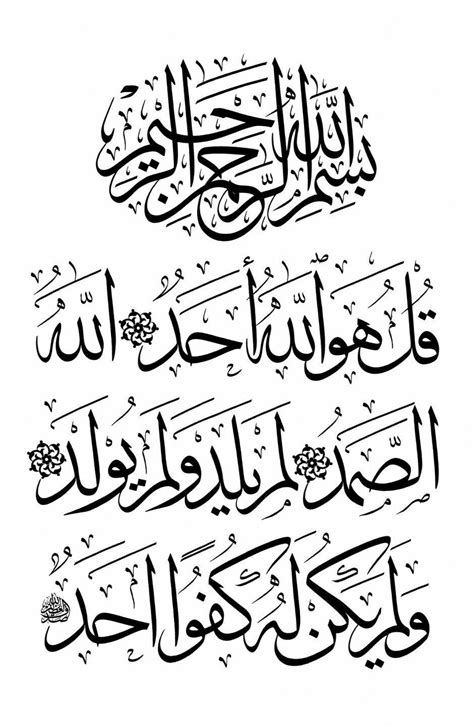 بسم الله الرحمن الرحيم
قُلْ هُوَ اللَّهُ أَحَدٌ اللَّهُ
الصَّمَدُ لَمْ يَلِدْ وَلَمْ يُولَدْ
وَلَمْ يَكُنْ لَهُ كُفُوًا أَحَدٌ